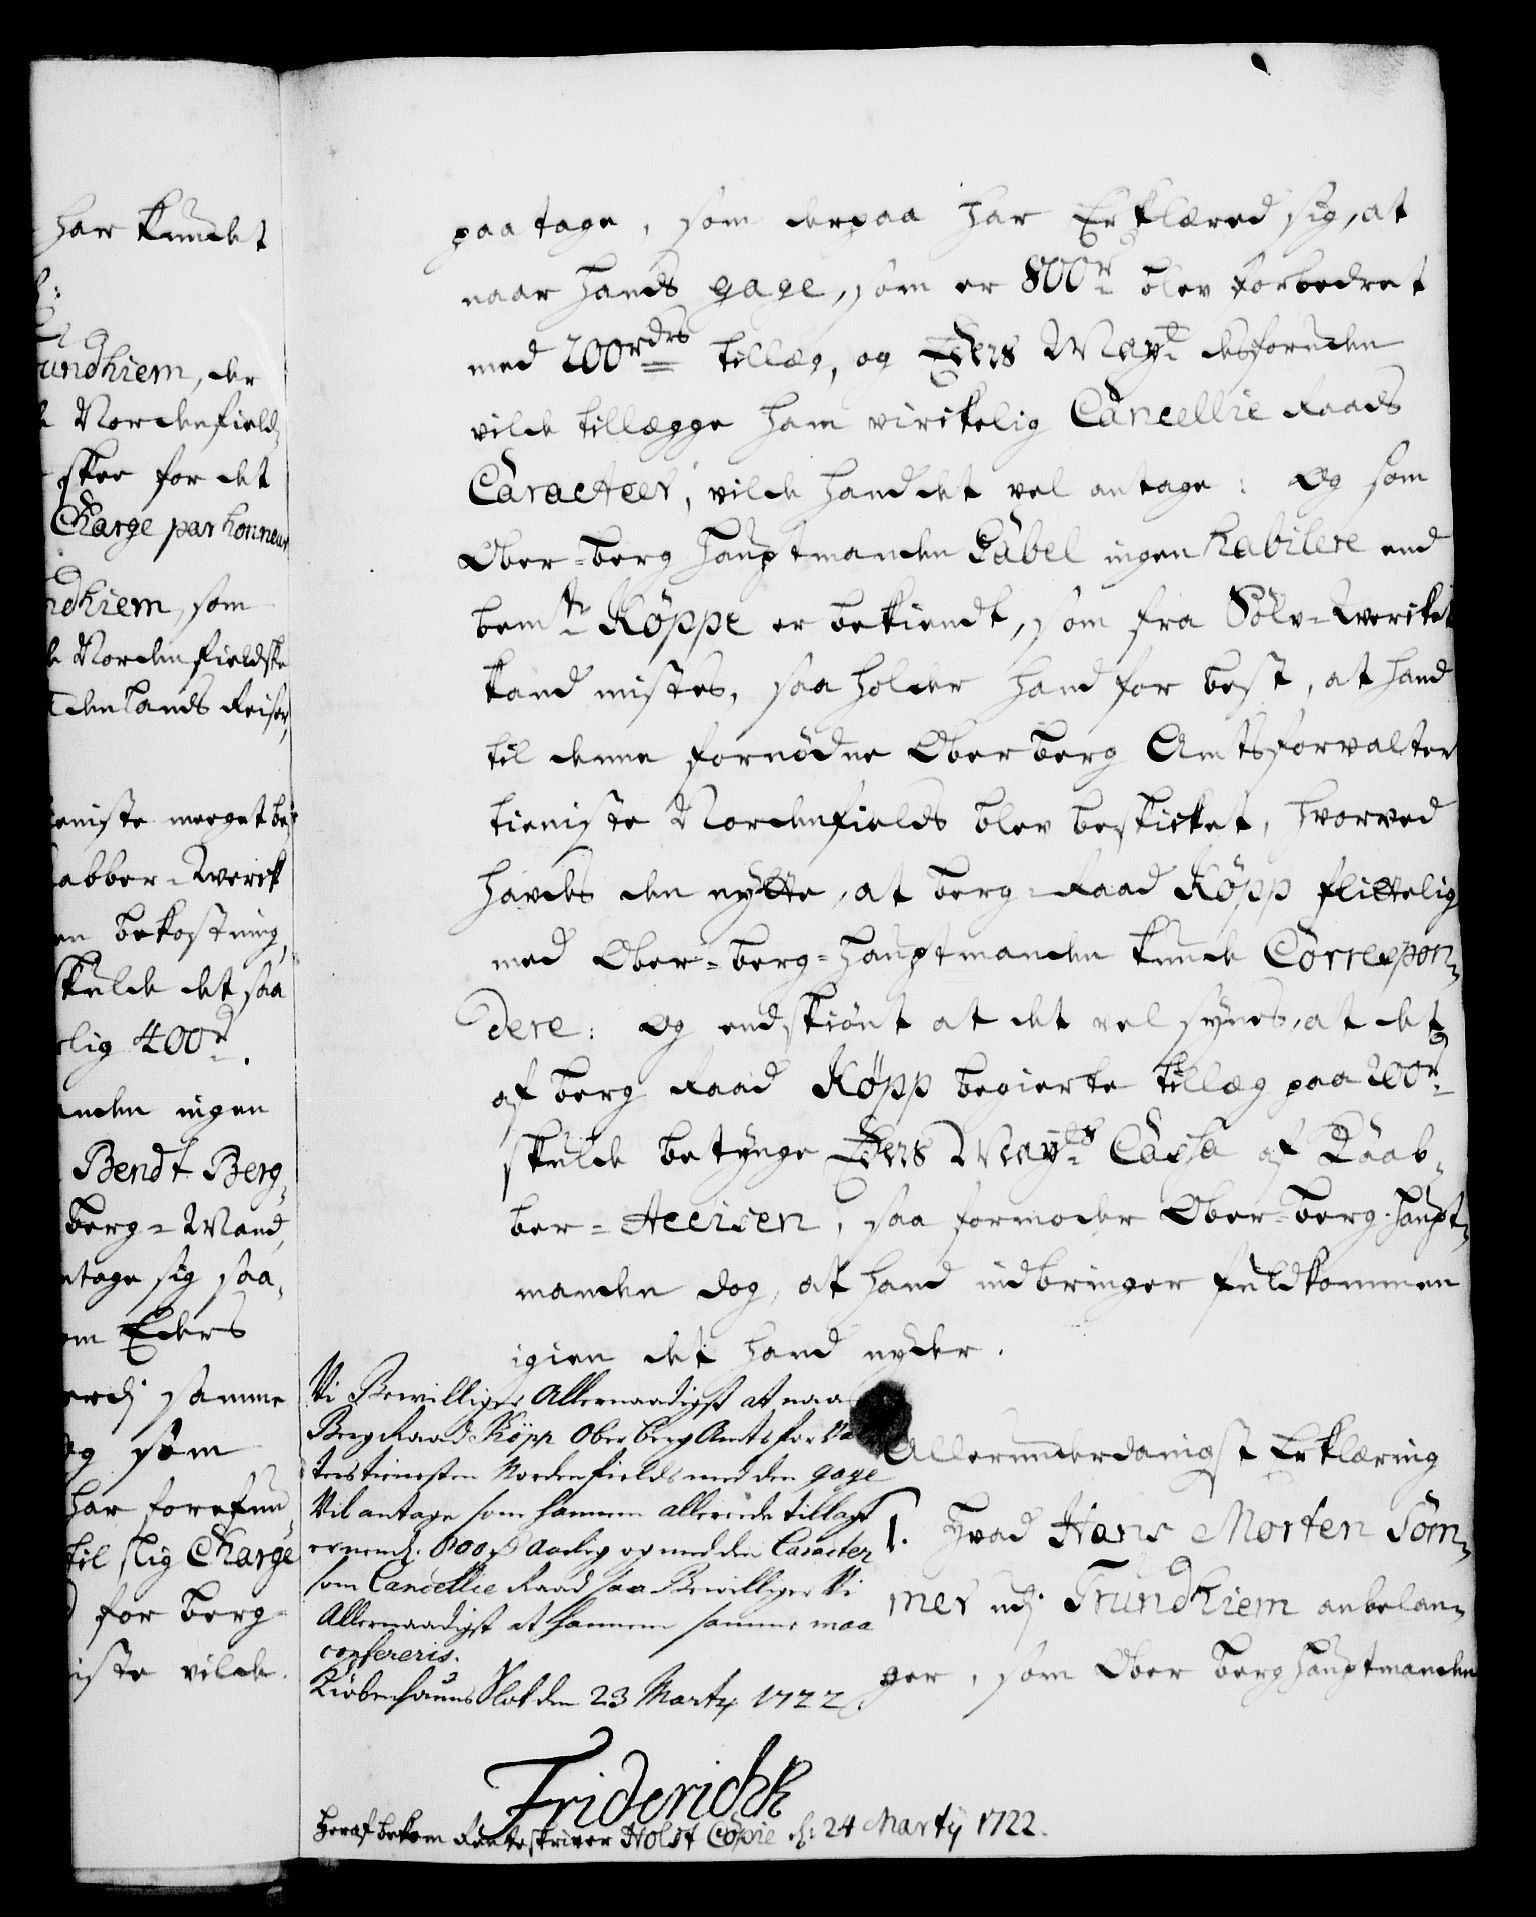 har kundet
undhiem, der
Nordenfields
skee for det
Charge par honneur
ndhiem, som
Nordenfieldske
denlands Reiser,
ieniste meget be
abber-Werck
en bekostning,
skulde det saa
rlig 400 r
anden ingen
Bendt Berg-
berg-Mand,
ntage sig saa-
om Eders
erdj samme
og som
har forefun-
til slig Charge
for berg-
iste vilde.
paatage, som derpaa har Erklæred sig, at
naar hands gage, som er 800 r blev forbedret
med 200 rdrs tillæg, og Eders May desforuden
vilde tillægge ham virckelig Cancellie Raads
Caracteer, vilde hand det vel antage: Og som
Ober-berg hauptmanden Gabel ingen habilere end
bemte Köppe er bekiendt, som fra Sölv-Wercket
kand mistes, saa holder hand for best, at hand
til denne fornødne Oberberg Amtsforvalter
tieniste Nordenfields blev beskicket, hvorved
havdes den nytte, at berg-Raad Köpp flittelig
med Ober-berg-hauptmanden kunde Correspon-
dere: Og endskiønt at det vel synes, at det
af berg Raad Köpp begierte tillæg paa 200 r
skulde betynge Eders Mayts Cassa af Kaab-
ber-Accisen, saa formoder Ober-berg-haupt-
manden dog, at hand indbringer fuldkommen
igien det hand nyder.
Vi Bewilliger Allernaadigst at naar
Berg Raad Köpp Ober berg Amts for Va
ters tienesten Nordenfields med den gage
Vil antage som hannem allerede tillagt
er nemb: 800 rd Aarlig og med den Caracter
som Cancellie Raad saa Bewilliger Vi
Allernaadigst at hannem samme maa
confereris.
Kiøbenhauns Slot den 23 Martij 1722.
Friderich R
Heraf bekom Renteskriver Holst Copie d: 24 Martij 1722.
Allerunderdanigst Erklæring
1. Hvad Hans Morten Som-
mer udj Trundhiem anbelan-
ger, som Ober berghauptmanden